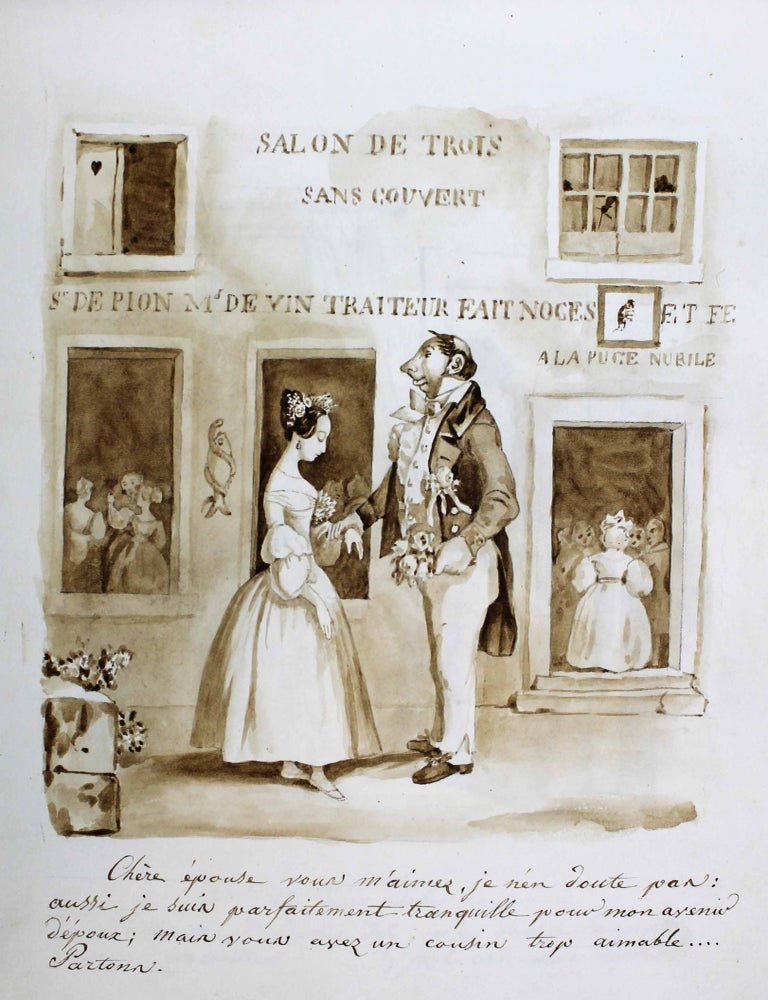 SALON DE TROIS
SANS COUVERT
Sr DE PION Md DE VIN TRAITEUR FAIT NOCES ET FE
A LA PUCE NUBILE
Chère épouse vous m'aimez, je n'en doute pas:
aussi je suis parfaitement tranquille pour mon avenir
d'époux; mais vous avez un cousin trop aimable....
Partons.